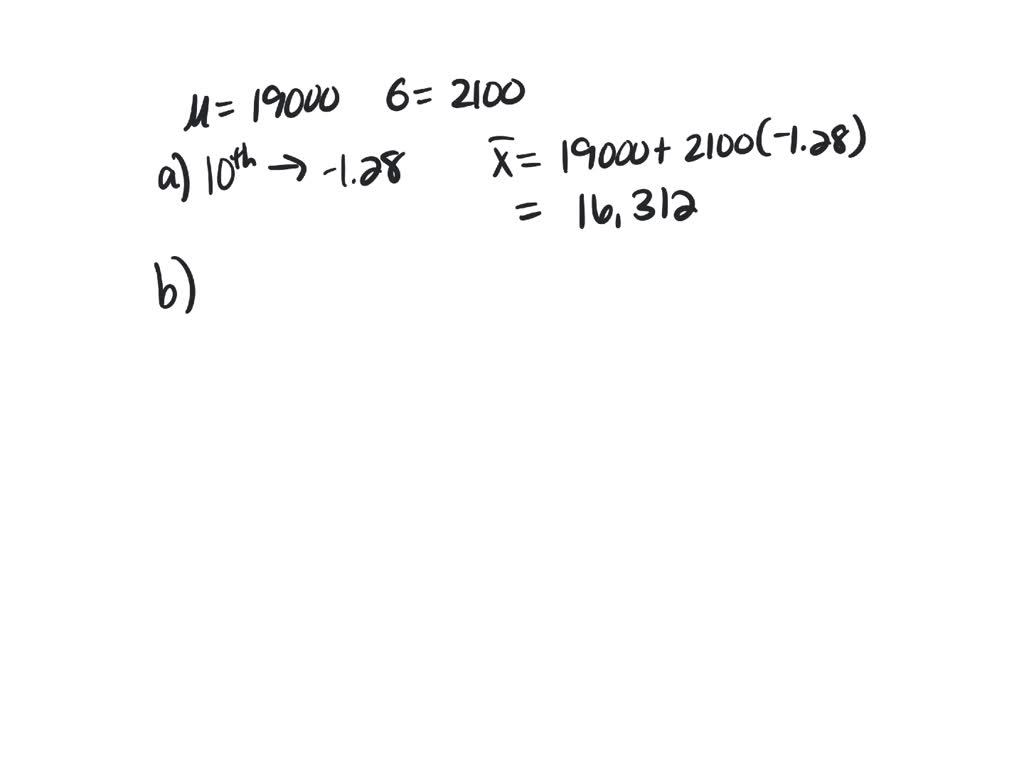 μ = 19000 σ = 2100
a) 10th → -1.28 x̄ = 19000 + 2100(-1.28)
= 16,312
b)